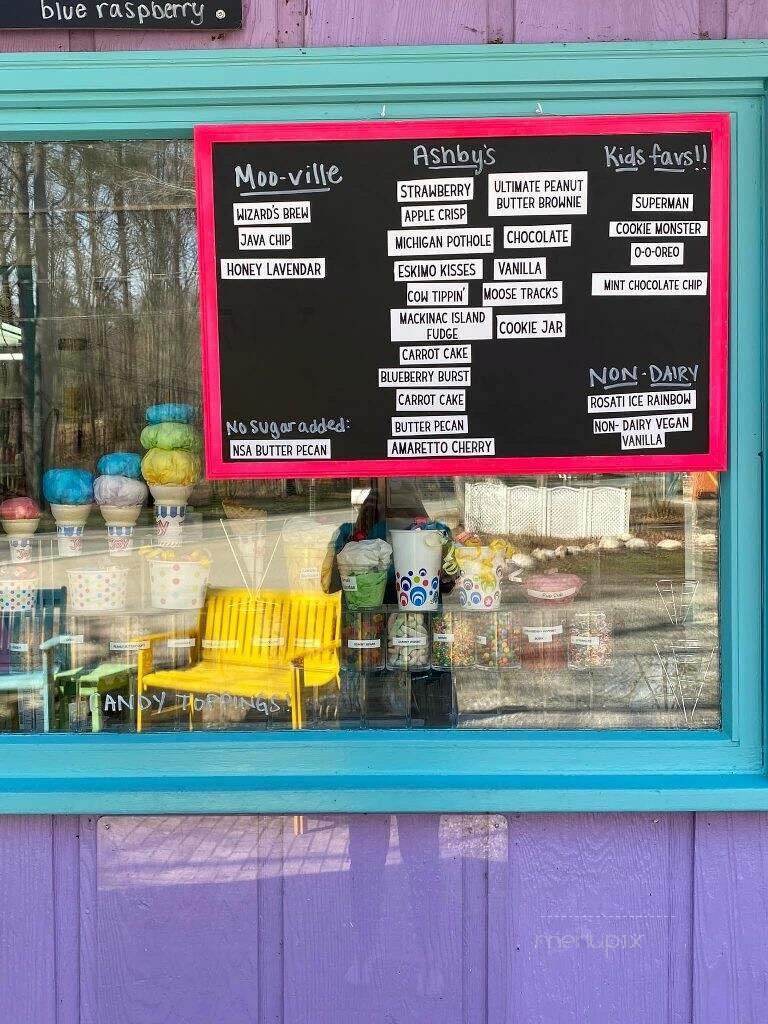 blue raspberry
Moo-ville
WIZARD'S BREW
JAVA CHIP
HONEY LAVENDAR
No Sugar added:
NSA BUTTER PECAN
Ashby's
STRAWBERRY
APPLE CRISP
MICHIGAN POTHOLE
ESKIMO KISSES
COW TIPPIN'
MACKINAC ISLAND
FUDGE
CARROT CAKE
BLUEBERRY BURST
CARROT CAKE
BUTTER PECAN
AMARETTO CHERRY
ULTIMATE PEANUT
BUTTER BROWNIE
CHOCOLATE
VANILLA
MOOSE TRACKS
COOKIE JAR
Kids favs!!
SUPERMAN
COOKIE MONSTER
O-O-OREO
MINT CHOCOLATE CHIP
NON-DAIRY
ROSATI ICE RAINBOW
NON- DAIRY VEGAN
VANILLA
Joy
Joy
Joy
CANDY TOPPINGS
menupix